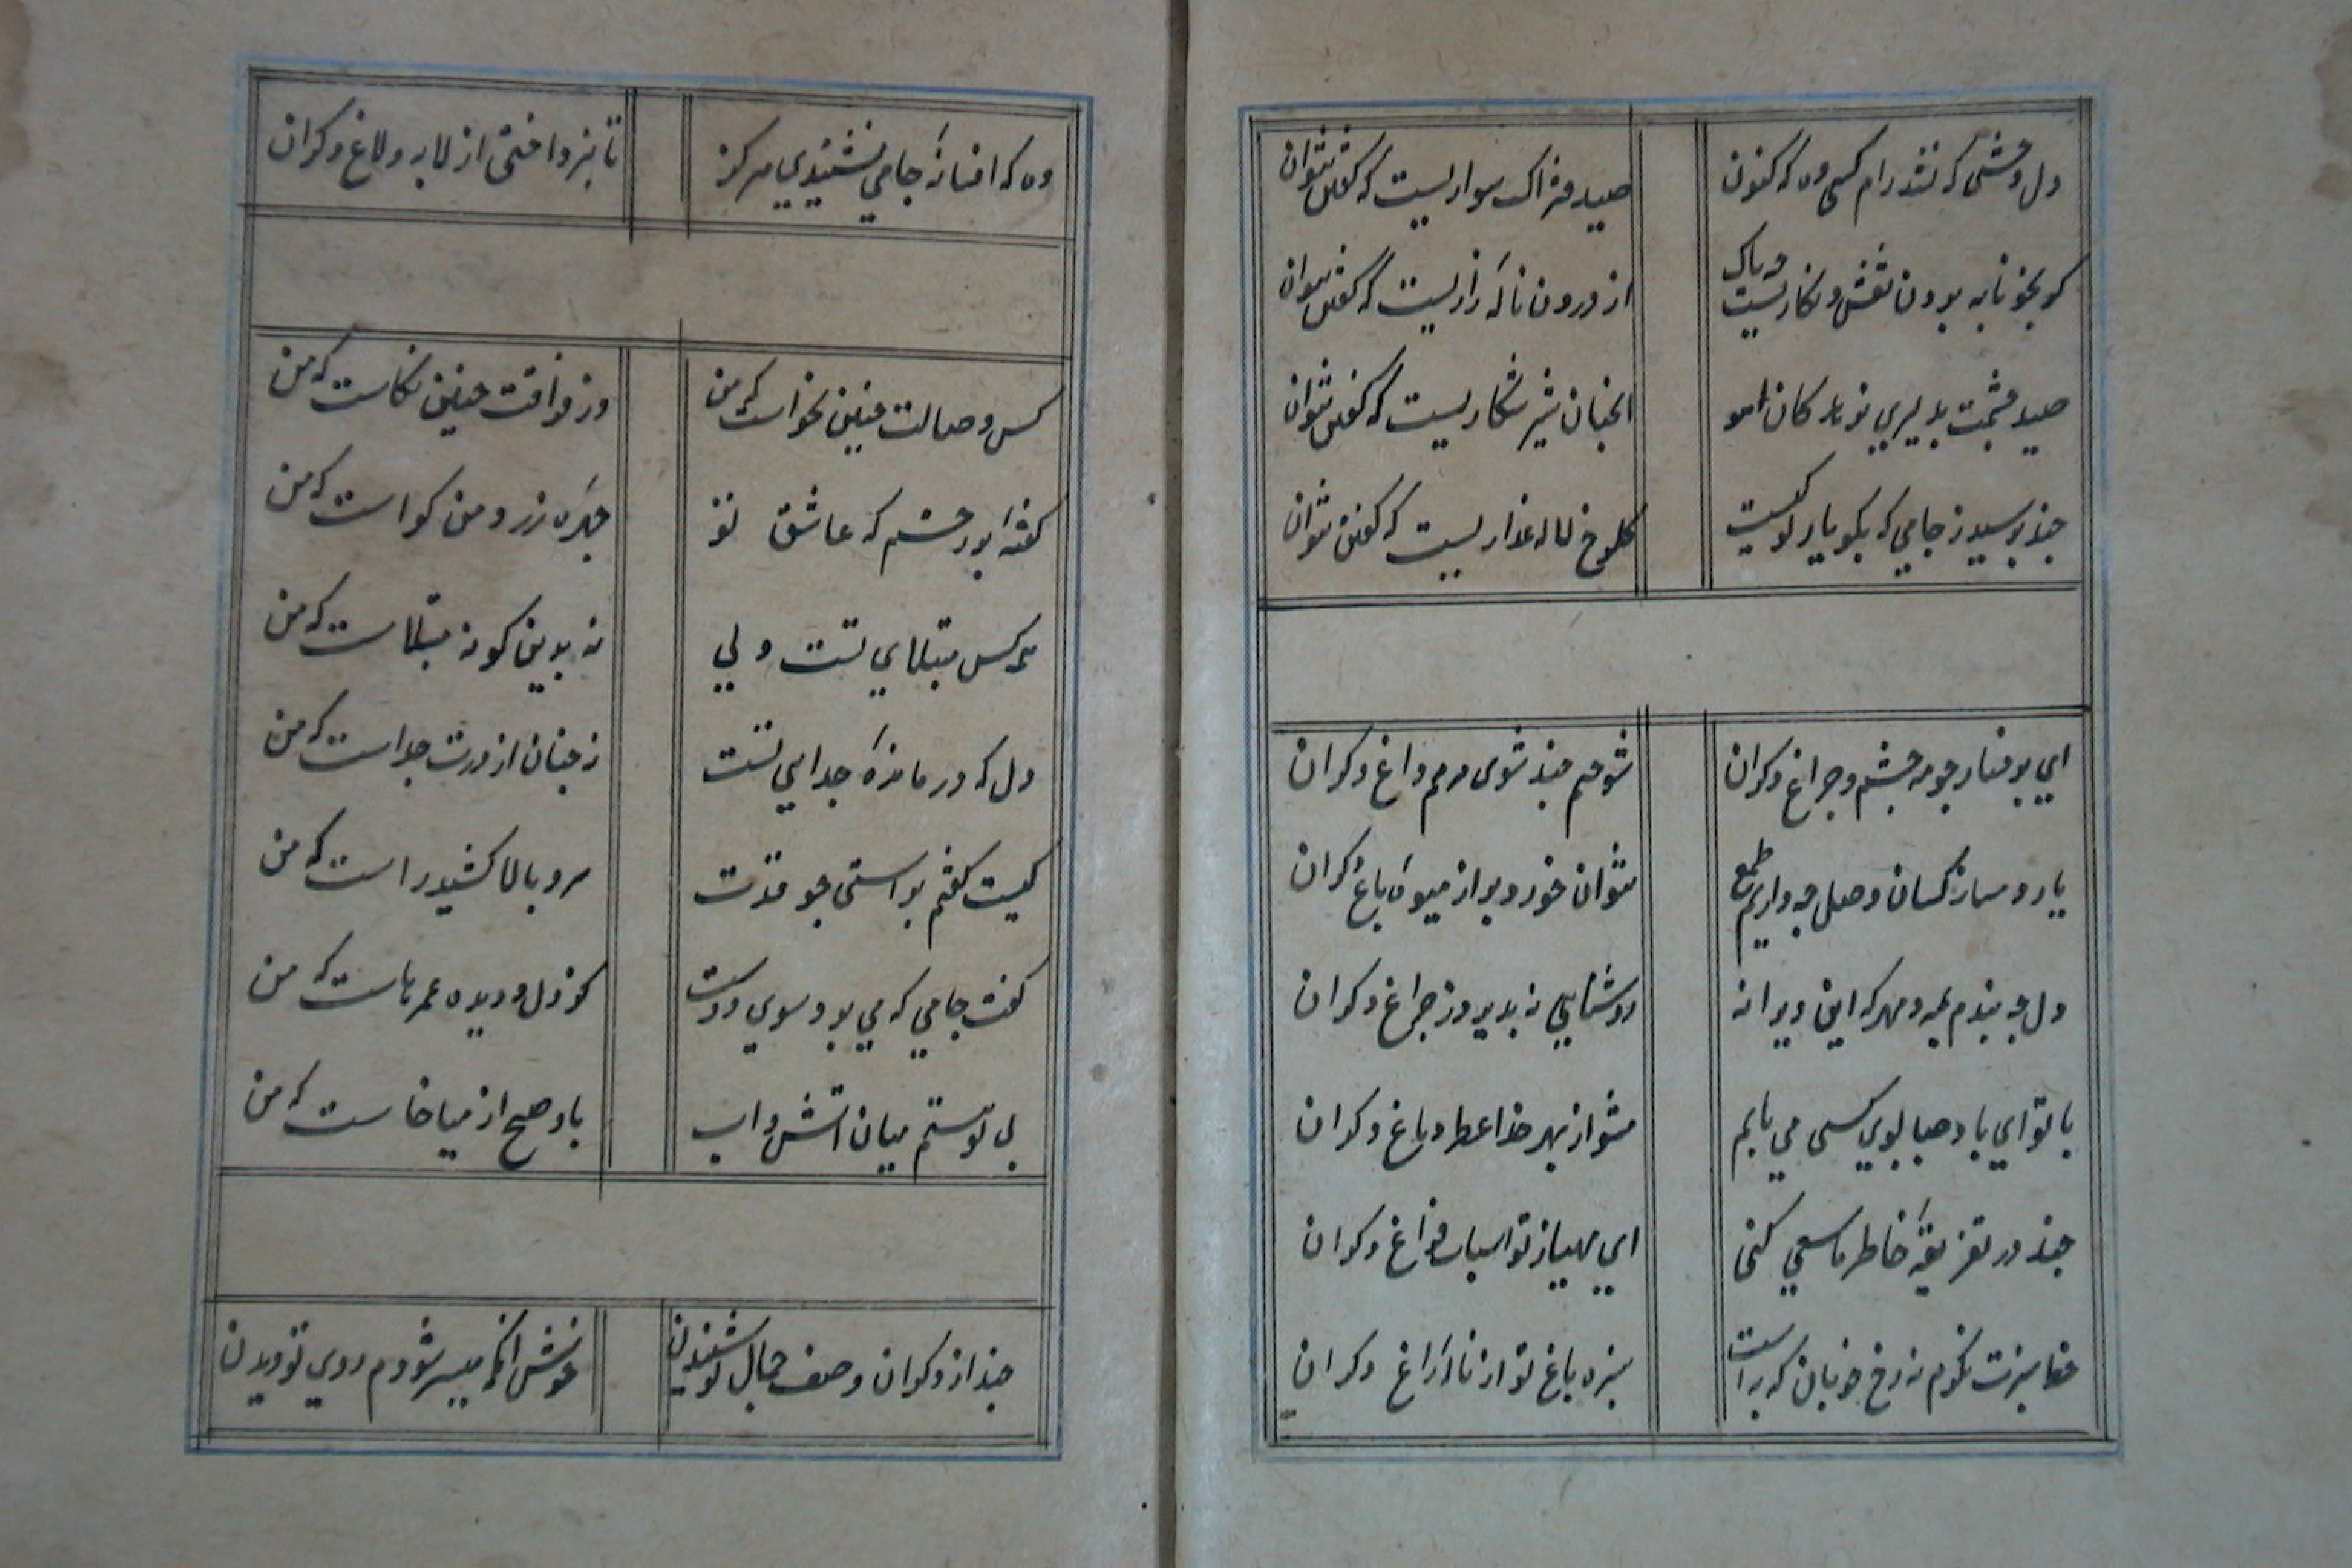 دل وحشی که نشد رام کسی وه که کنون صید فتراک سواریست که گفتن نتوان
گر بخونابه برون نقش و نگاریست چه باک از درون ناله زاریست که گفتن نتوان
صید چشمت بدلیری نو کان اهو انچنان شیر شکاریست که گفتن نتوان
چند پرسید ز جامی که بگو یار تو کیست گلرخ لاله عذاریست که گفتن نتوان
ای برخسار چو مه چشم و چراغ دکران سوختم چند شوی مرهم داغ دکران
یار دمساز کسان وصل چه داریم طمع نتوان خورد بر از میوه باغ دکران
دل چه بندم بمه و مهر که این ویرانه روشنایی نه پذیرد ز چراغ دکران
با تو ای باد صبا بوی کسی می یابم مشو از بهر خدا عطر دماغ دکران
چند در تفرقه خاطر ما سعی کنی ای مهیا ز تو اسباب فراغ دکران
خط سبزت نگرم نه رخ خوبان که به است سبزه باغ تو از لاله راغ دکران
وه که افسانه جامی نشنیدی هرگز تا نپرداختی از لابه و لاغ دکران
کس وصالت چنین نخواست که من وز فراقت چنین نکاست که من
گفته بودم که عاشق تو چهره زرد من گواست که من
هر کس مبتلای تست ولی نه بدین گونه مبتلاست که من
دل که درمانده جدایی تست نه چنان از درت جداست که من
کیست گفتم براستی چو قدت سرو بالا کشید راست که من
گفت جامی که می برد سوی دوست کز دل و دیده عمرهاست که من
بی تو هستم میان اتش و اب باد صبح از میان خاست که من
چند از دکران وصف جمال تو شنیدن خوش انکه میسر شودم روی تو دیدن